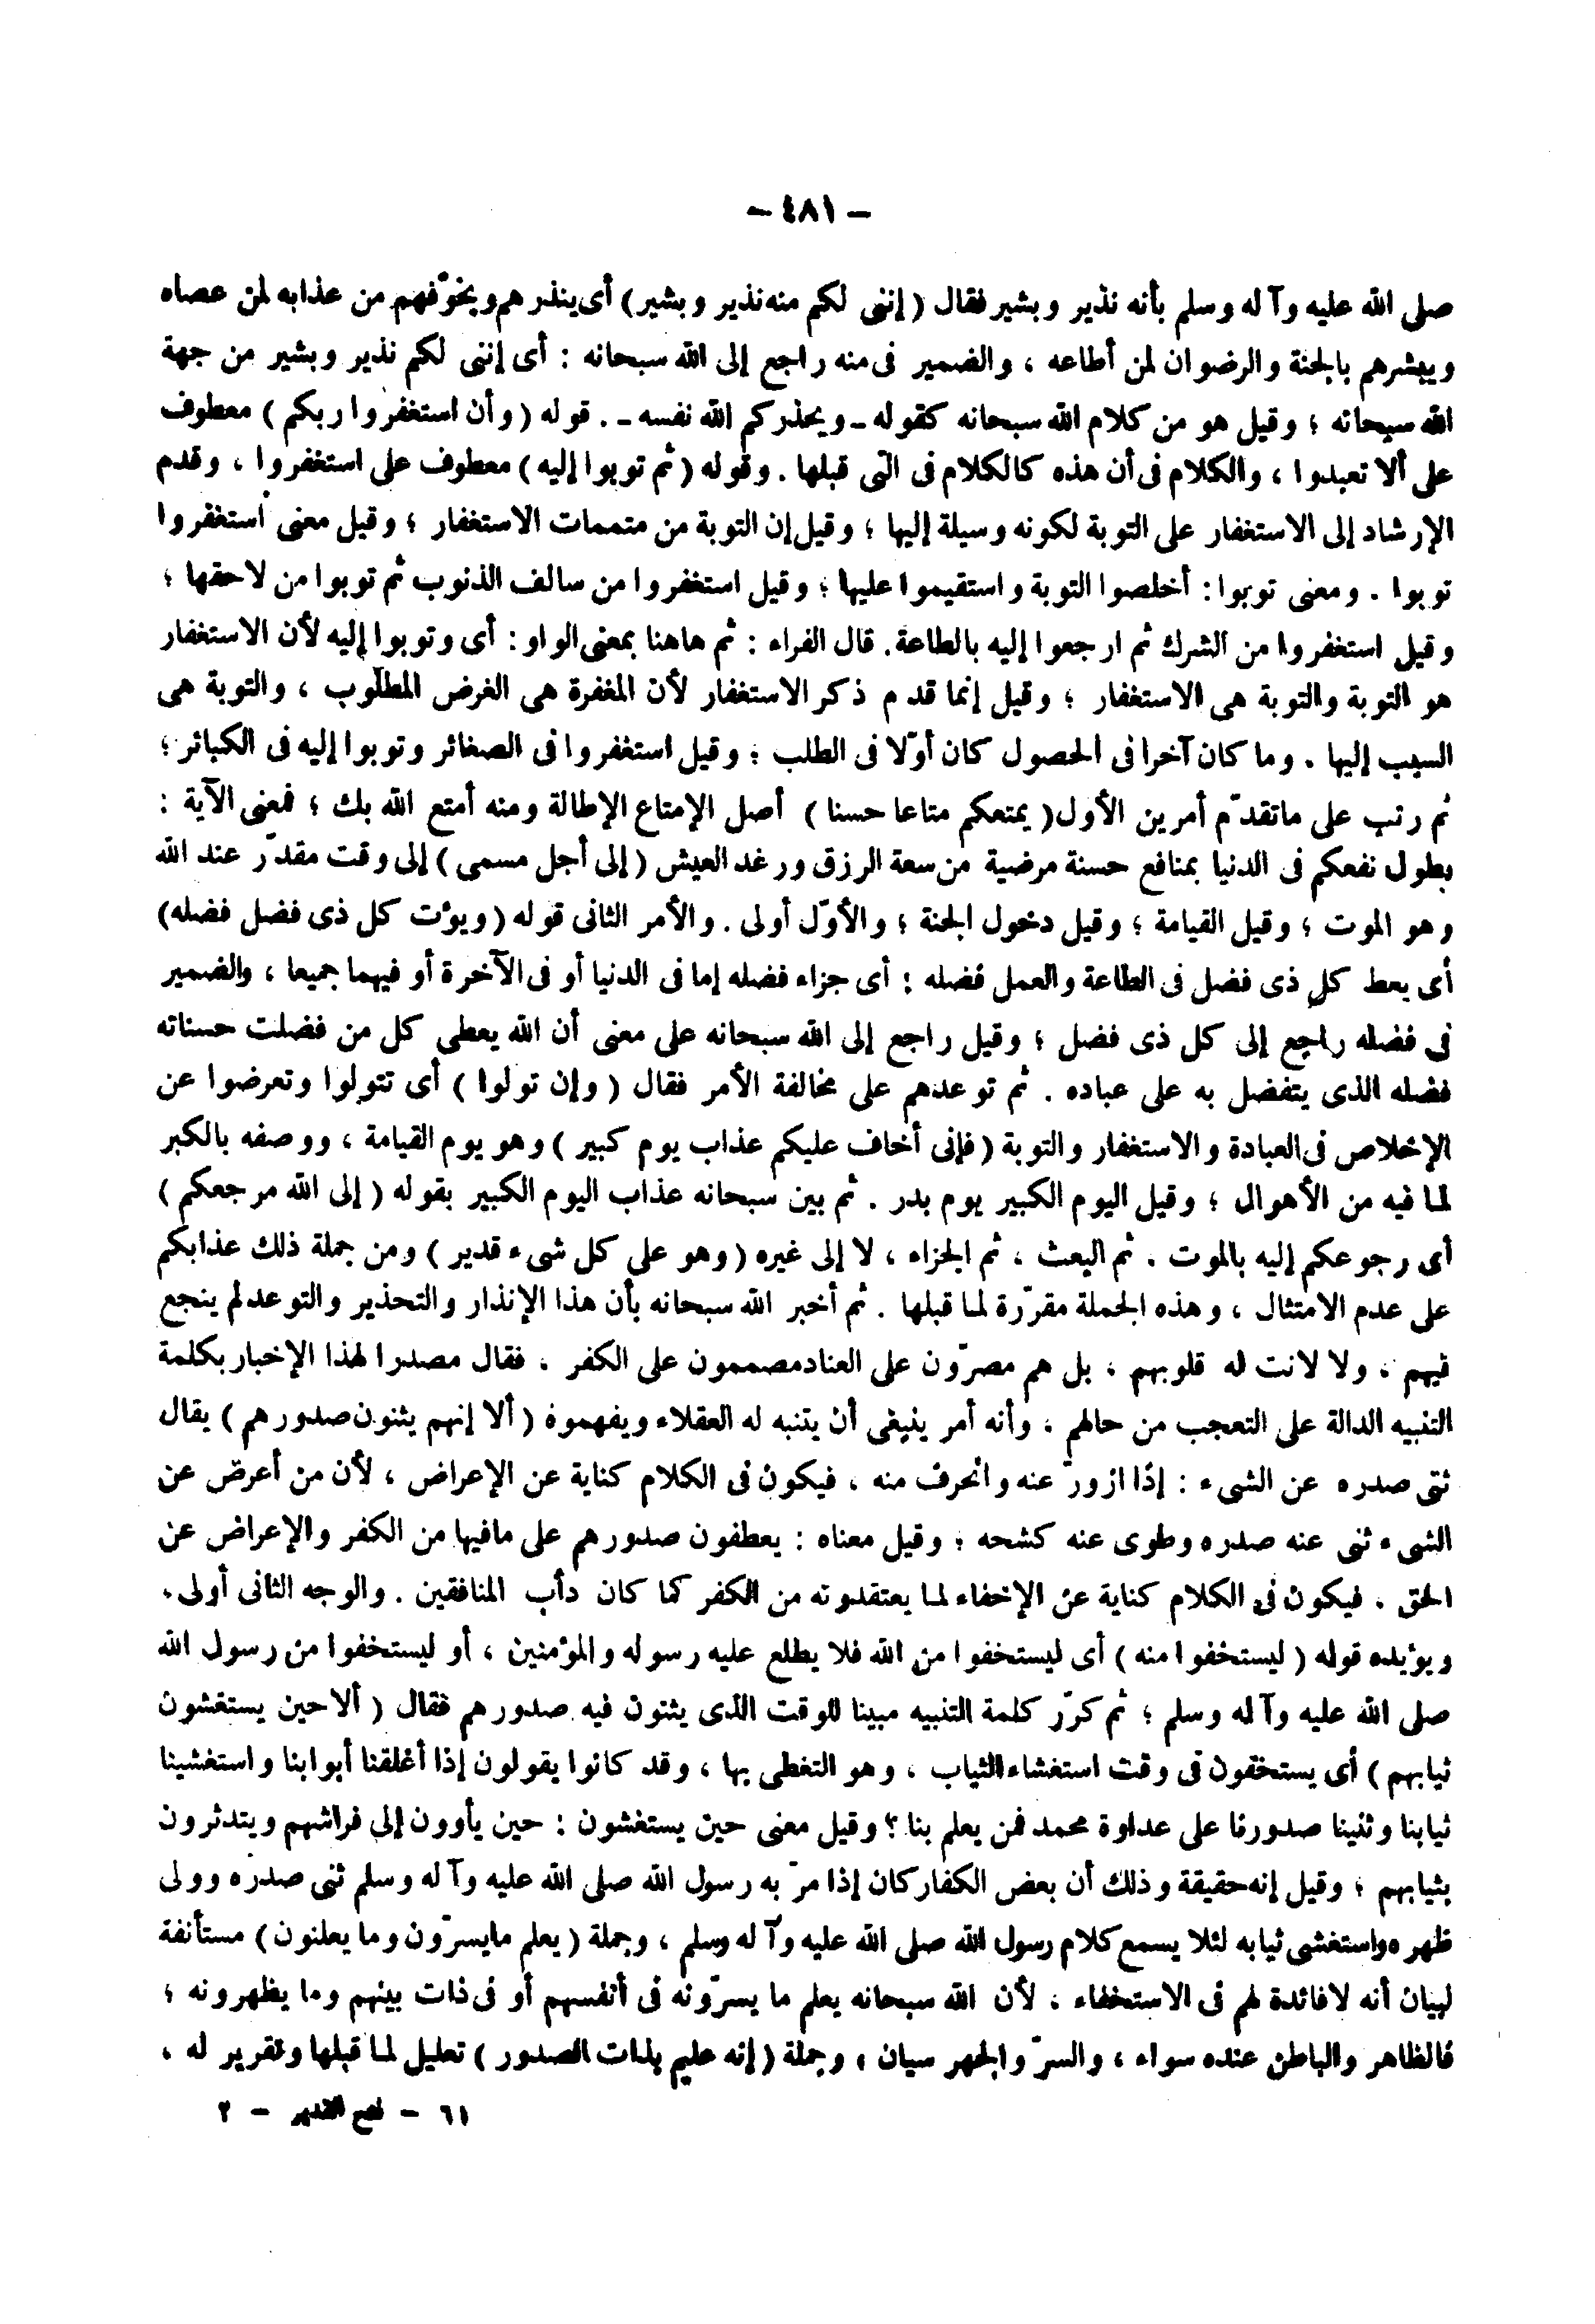 - ٤٨١ -
صلى الله عليه وآله وسلم بأنه نذير وبشير فقال ( إننى لكم منه نذير وبشير ) أى ينذرهم ويخوّفهم من عذابه لمن عصاه
ويبشرهم بالجنة والرضوان لمن أطاعه ، والضمير فى منه راجع إلى الله سبحانه : أى إننى لكم نذير وبشير من جهة
الله سبحانه ؛ وقيل هو من كلام الله سبحانه كقوله ـ ويحذركم الله نفسه ـ . قوله ( وأن استغفروا ربكم ) معطوف
على ألا تعبدوا ، والكلام فى أن هذه كالكلام فى التى قبلها . وقوله ( ثم توبوا إليه ) معطوف على استغفروا ، وقدم
الإرشاد إلى الاستغفار على التوبة لكونه وسيلة إليها ؛ وقيل إن التوبة من متممات الاستغفار ؛ وقيل معنى استغفروا
توبوا . ومعنى توبوا : أخلصوا التوبة واستقيموا عليها ؛ وقيل استغفروا من سالف الذنوب ثم توبوا من لاحقها ؛
وقيل استغفروا من الشرك ثم ارجعوا إليه بالطاعة . قال الفراء : ثم هاهنا بمعنى الواو : أى وتوبوا إليه لأن الاستغفار
هو التوبة والتوبة هى الاستغفار ؛ وقيل إنما قدم ذكر الاستغفار لأن المغفرة هى الغرض المطلوب ، والتوبة هى
السبب إليها . وما كان آخرا فى الحصول كان أوّلا فى الطلب ؛ وقيل استغفروا فى الصغائر وتوبوا إليه فى الكبائر ؛
ثم رتب على ماتقدّم أمرين الأول ( يمتعكم متاعا حسنا ) أصل الإمتاع الإطالة ومنه أمتع الله بك ؛ فمعنى الآية :
بطول نفعكم فى الدنيا بمنافع حسنة مرضية من سعة الرزق ورغد العيش ( إلى أجل مسمى ) إلى وقت مقدّر عند الله
وهو الموت ؛ وقيل القيامة ؛ وقيل دخول الجنة ؛ والأوّل أولى . والأمر الثانى قوله ( ويؤت كل ذى فضل فضله )
أى يعط كل ذى فضل فى الطاعة والعمل فضله : أى جزاء فضله إما فى الدنيا أو فى الآخرة أو فيهما جميعا ، والضمير
فى فضله راجع إلى كل ذى فضل ؛ وقيل راجع إلى الله سبحانه على معنى أن الله يعطى كل من فضلت حسناته
فضله الذى يتفضل به على عباده . ثم توعدهم على مخالفة الأمر فقال ( وإن تولوا ) أى تتولوا وتعرضوا عن
الإخلاص فى العبادة والاستغفار والتوبة ( فإنى أخاف عليكم عذاب يوم كبير ) وهو يوم القيامة ، ووصفه بالكبر
لما فيه من الأهوال ؛ وقيل اليوم الكبير يوم بدر . ثم بين سبحانه عذاب اليوم الكبير بقوله ( إلى الله مرجعكم )
أى رجوعكم إليه بالموت . ثم البعث ، ثم الجزاء ، لا إلى غيره ( وهو على كل شىء قدير ) ومن جملة ذلك عذابكم
على عدم الامتثال ، وهذه الجملة مقرّرة لما قبلها . ثم أخبر الله سبحانه بأن هذا الإنذار والتحذير والتوعد لم ينجع
فيهم ، ولا لانت له قلوبهم ، بل هم مصرّون على العناد مصممون على الكفر ، فقال مصدرا لهذا الإخبار بكلمة
التنبيه الدالة على التعجب من حالهم ، وأنه أمر ينبغى أن يتنبه له العقلاء ويفهموه ( ألا إنهم يثنون صدورهم ) يقال
ثنى صدره عن الشىء : إذا ازورّ عنه وانحرف منه ، فيكون فى الكلام كناية عن الإعراض ، لأن من أعرض عن
الشىء ثنى عنه صدره وطوى عنه كشحه ؛ وقيل معناه : يعطفون صدورهم على مافيها من الكفر والإعراض عن
الحق . فيكون فى الكلام كناية عن الإخفاء لما يعتقدونه من الكفر كما كان دأب المنافقين . والوجه الثانى أولى .
ويؤيده قوله ( ليستخفوا منه ) أى ليستخفوا من الله فلا يطلع عليه رسوله والمؤمنين ، أو ليستخفوا من رسول الله
صلى الله عليه وآله وسلم ؛ ثم كرّر كلمة التنبيه مبينا للوقت الذى يثنون فيه صدورهم فقال ( ألا حين يستغشون
ثيابهم ) أى يستخفون فى وقت استغشاء الثياب ، وهو التغطى بها ، وقد كانوا يقولون إذا أغلقنا أبوابنا واستغشينا
ثيابنا وثنينا صدورنا على عداوة محمد فمن يعلم بنا ؟ وقيل معنى حين يستغشون : حين يأوون إلى فراشهم ويتدثرون
بثيابهم ؛ وقيل إنه حقيقة وذلك أن بعض الكفار كان إذا مرّ به رسول الله صلى الله عليه وآله وسلم ثنى صدره وولى
ظهره واستغشى ثيابه لئلا يسمع كلام رسول الله صلى الله عليه وآله وسلم ، وجملة ( يعلم مايسرّون وما يعلنون ) مستأنفة
لبيان أنه لافائدة لهم فى الاستخفاء ، لأن الله سبحانه يعلم ما يسرّونه فى أنفسهم أو فى ذات بينهم وما يظهرونه ؛
فالظاهر والباطن عنده سواء ، والسرّ والجهر سيان ، وجملة ( إنه عليم بذات الصدور ) تعليل لما قبلها وتقرير له ،
٦١ - فتح القدير - ٢